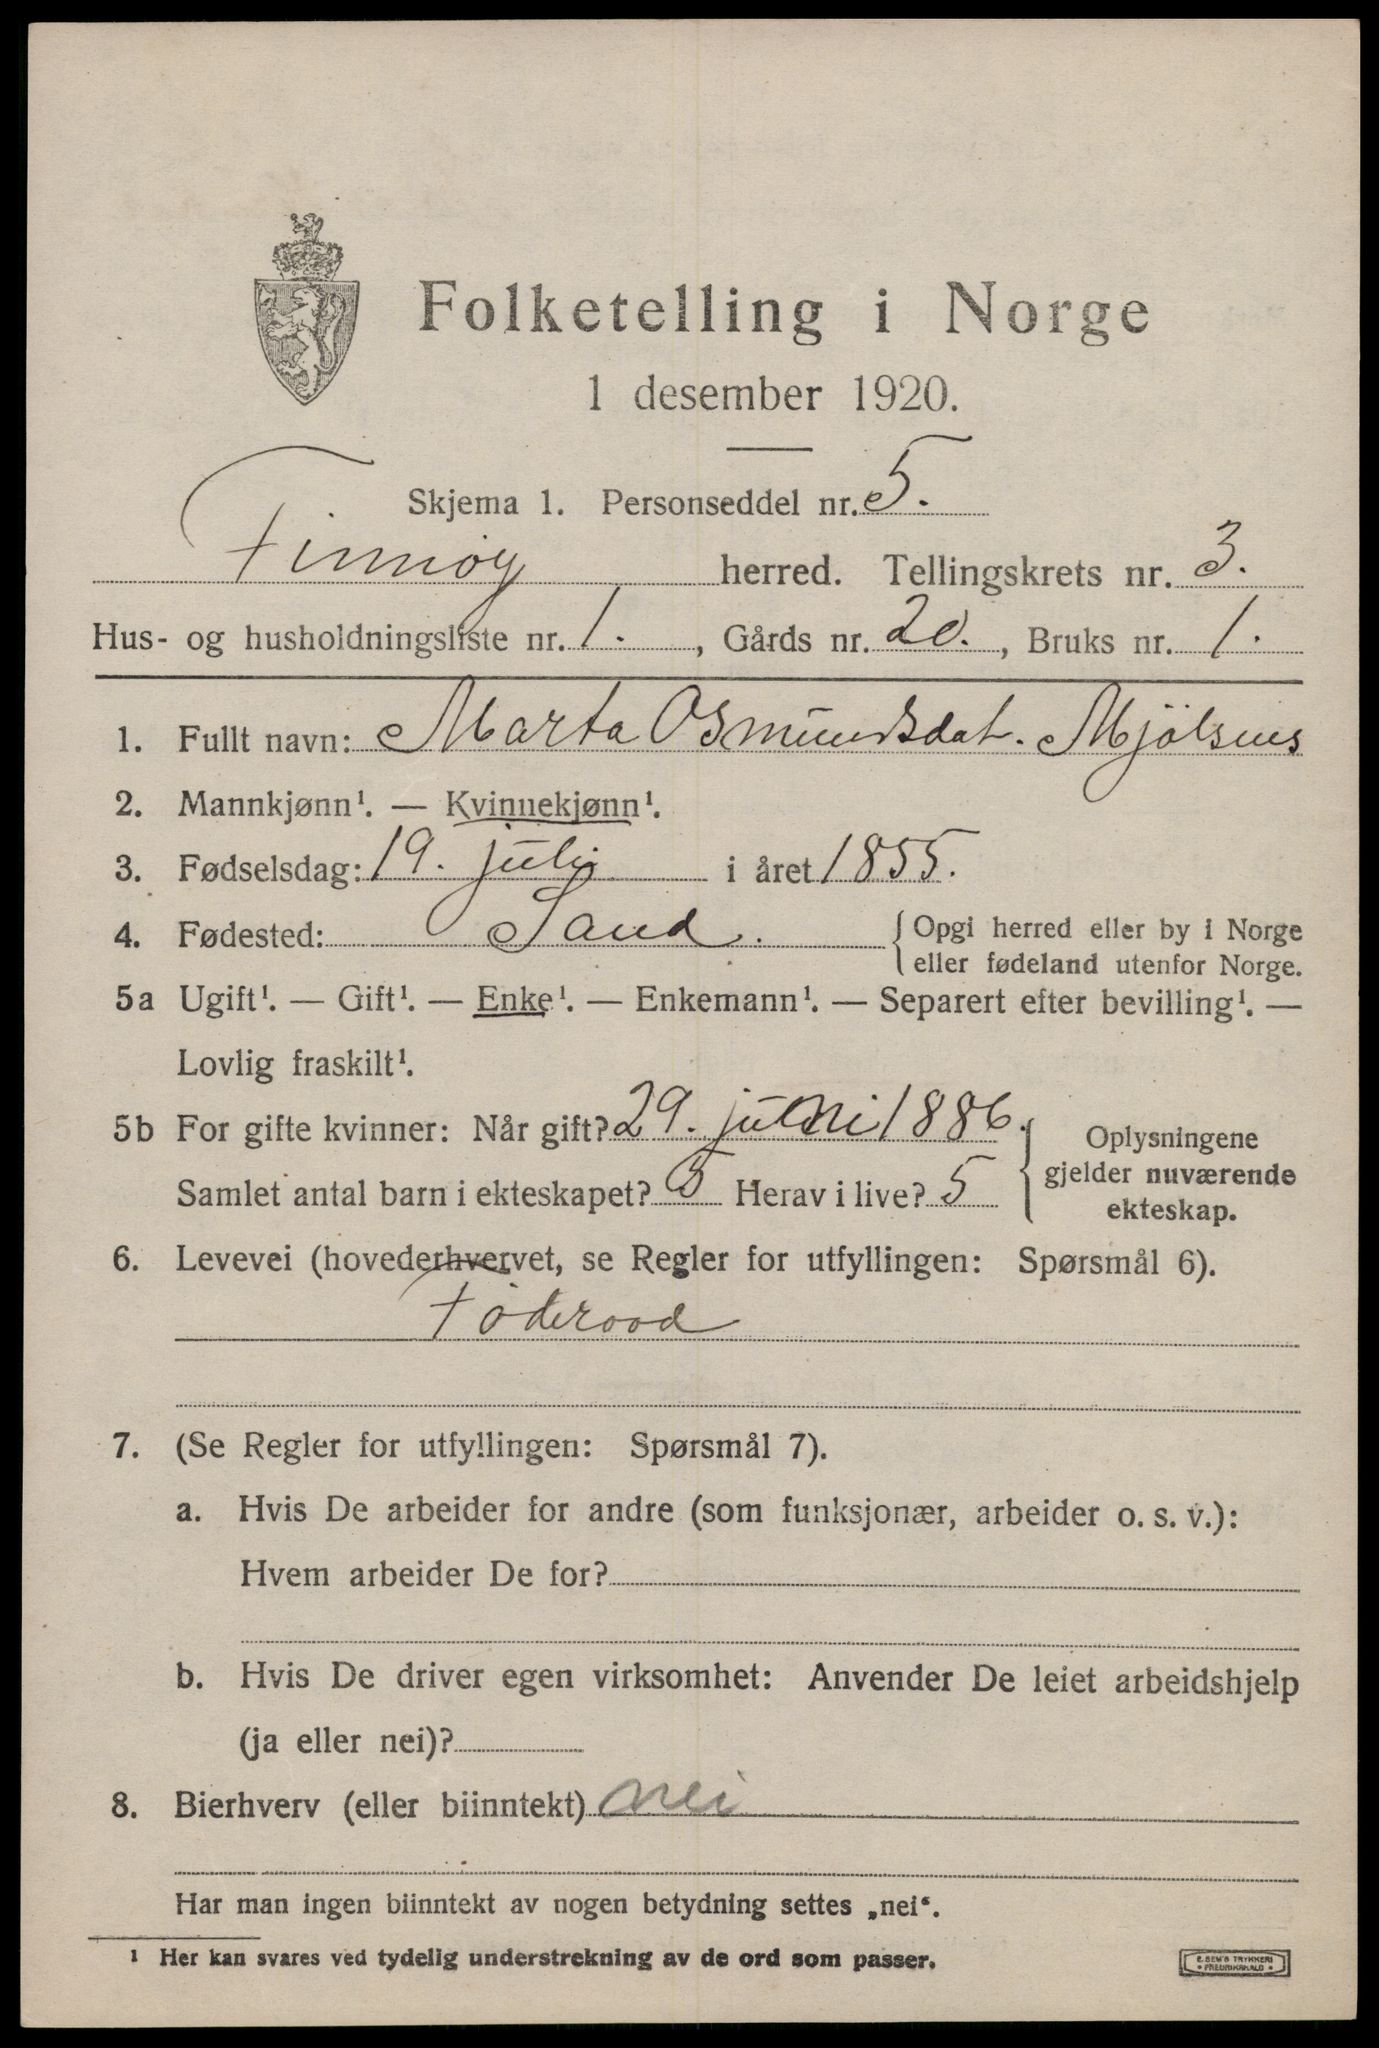 Folketelling i Norge
1 desember 1920.
Skjema 1. Personseddel nr. 5.
Finnöy herred. Tellingskrets nr. 3.
Hus- og husholdningsliste nr. 1. , Gårds nr. 20. , Bruks nr. 1.
1. Fullt navn: Marta Osmundsdat. Mjölsnes
2. Mannkjønn¹. — Kvinnekjønn¹.
3. Fødselsdag: 19. juli i året 1855.
4. Fødested: Sand. { Opgi herred eller by i Norge
eller fødeland utenfor Norge.
5a Ugift¹. — Gift¹. — Enke¹. — Enkemann¹. — Separert efter bevilling¹. —
Lovlig fraskilt¹.
5b For gifte kvinner: Når gift? 29. juni 1886.
Samlet antal barn i ekteskapet? 5 Herav i live? 5
Oplysningene
gjelder nuværende
ekteskap.
6. Levevei (hovederhvervet, se Regler for utfyllingen: Spørsmål 6).
Föderaad
7. (Se Regler for utfyllingen: Spørsmål 7).
a. Hvis De arbeider for andre (som funksjonær, arbeider o. s. v.):
Hvem arbeider De for?
b. Hvis De driver egen virksomhet: Anvender De leiet arbeidshjelp
(ja eller nei)?
8. Bierhverv (eller biinntekt) nei
Har man ingen biinntekt av nogen betydning settes „nei“.
¹ Her kan svares ved tydelig understrekning av de ord som passer.
E. SEM'S TRYKKERI
• FREDRIKSHALD •